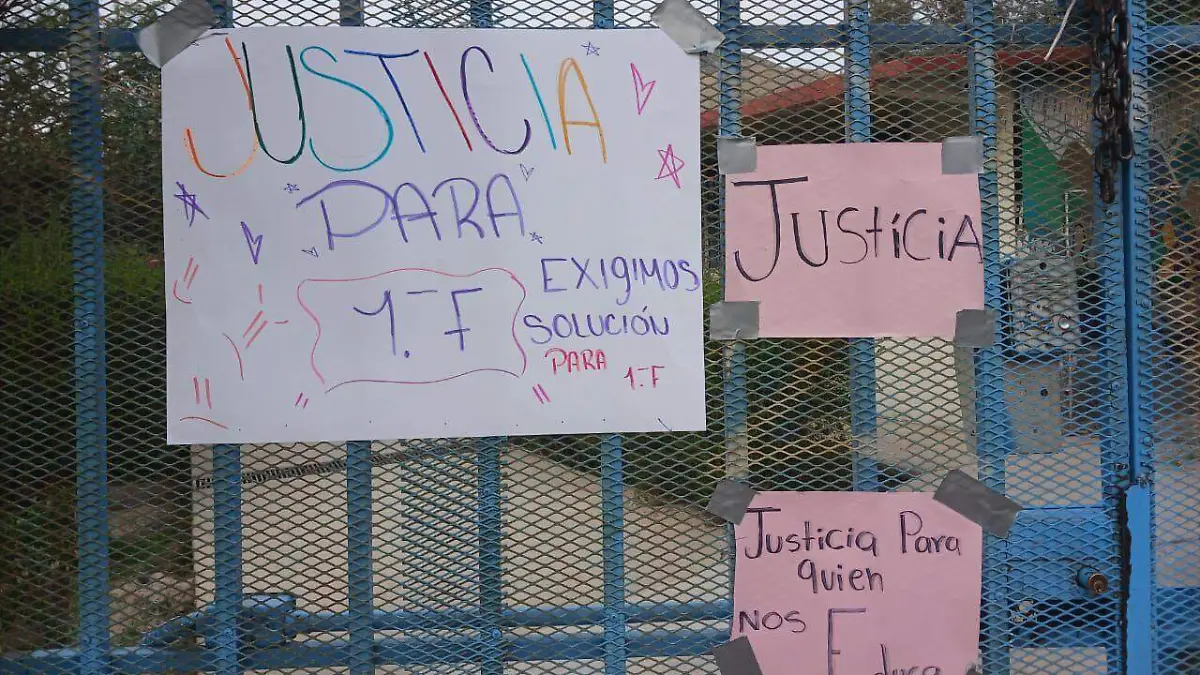 JUSTICIA
PARA
1.- F
EXIGIMOS
SOLUCIÓN
PARA
1.- F
JUSTÍCIA
Justicia Para
quien
NOS
Educa